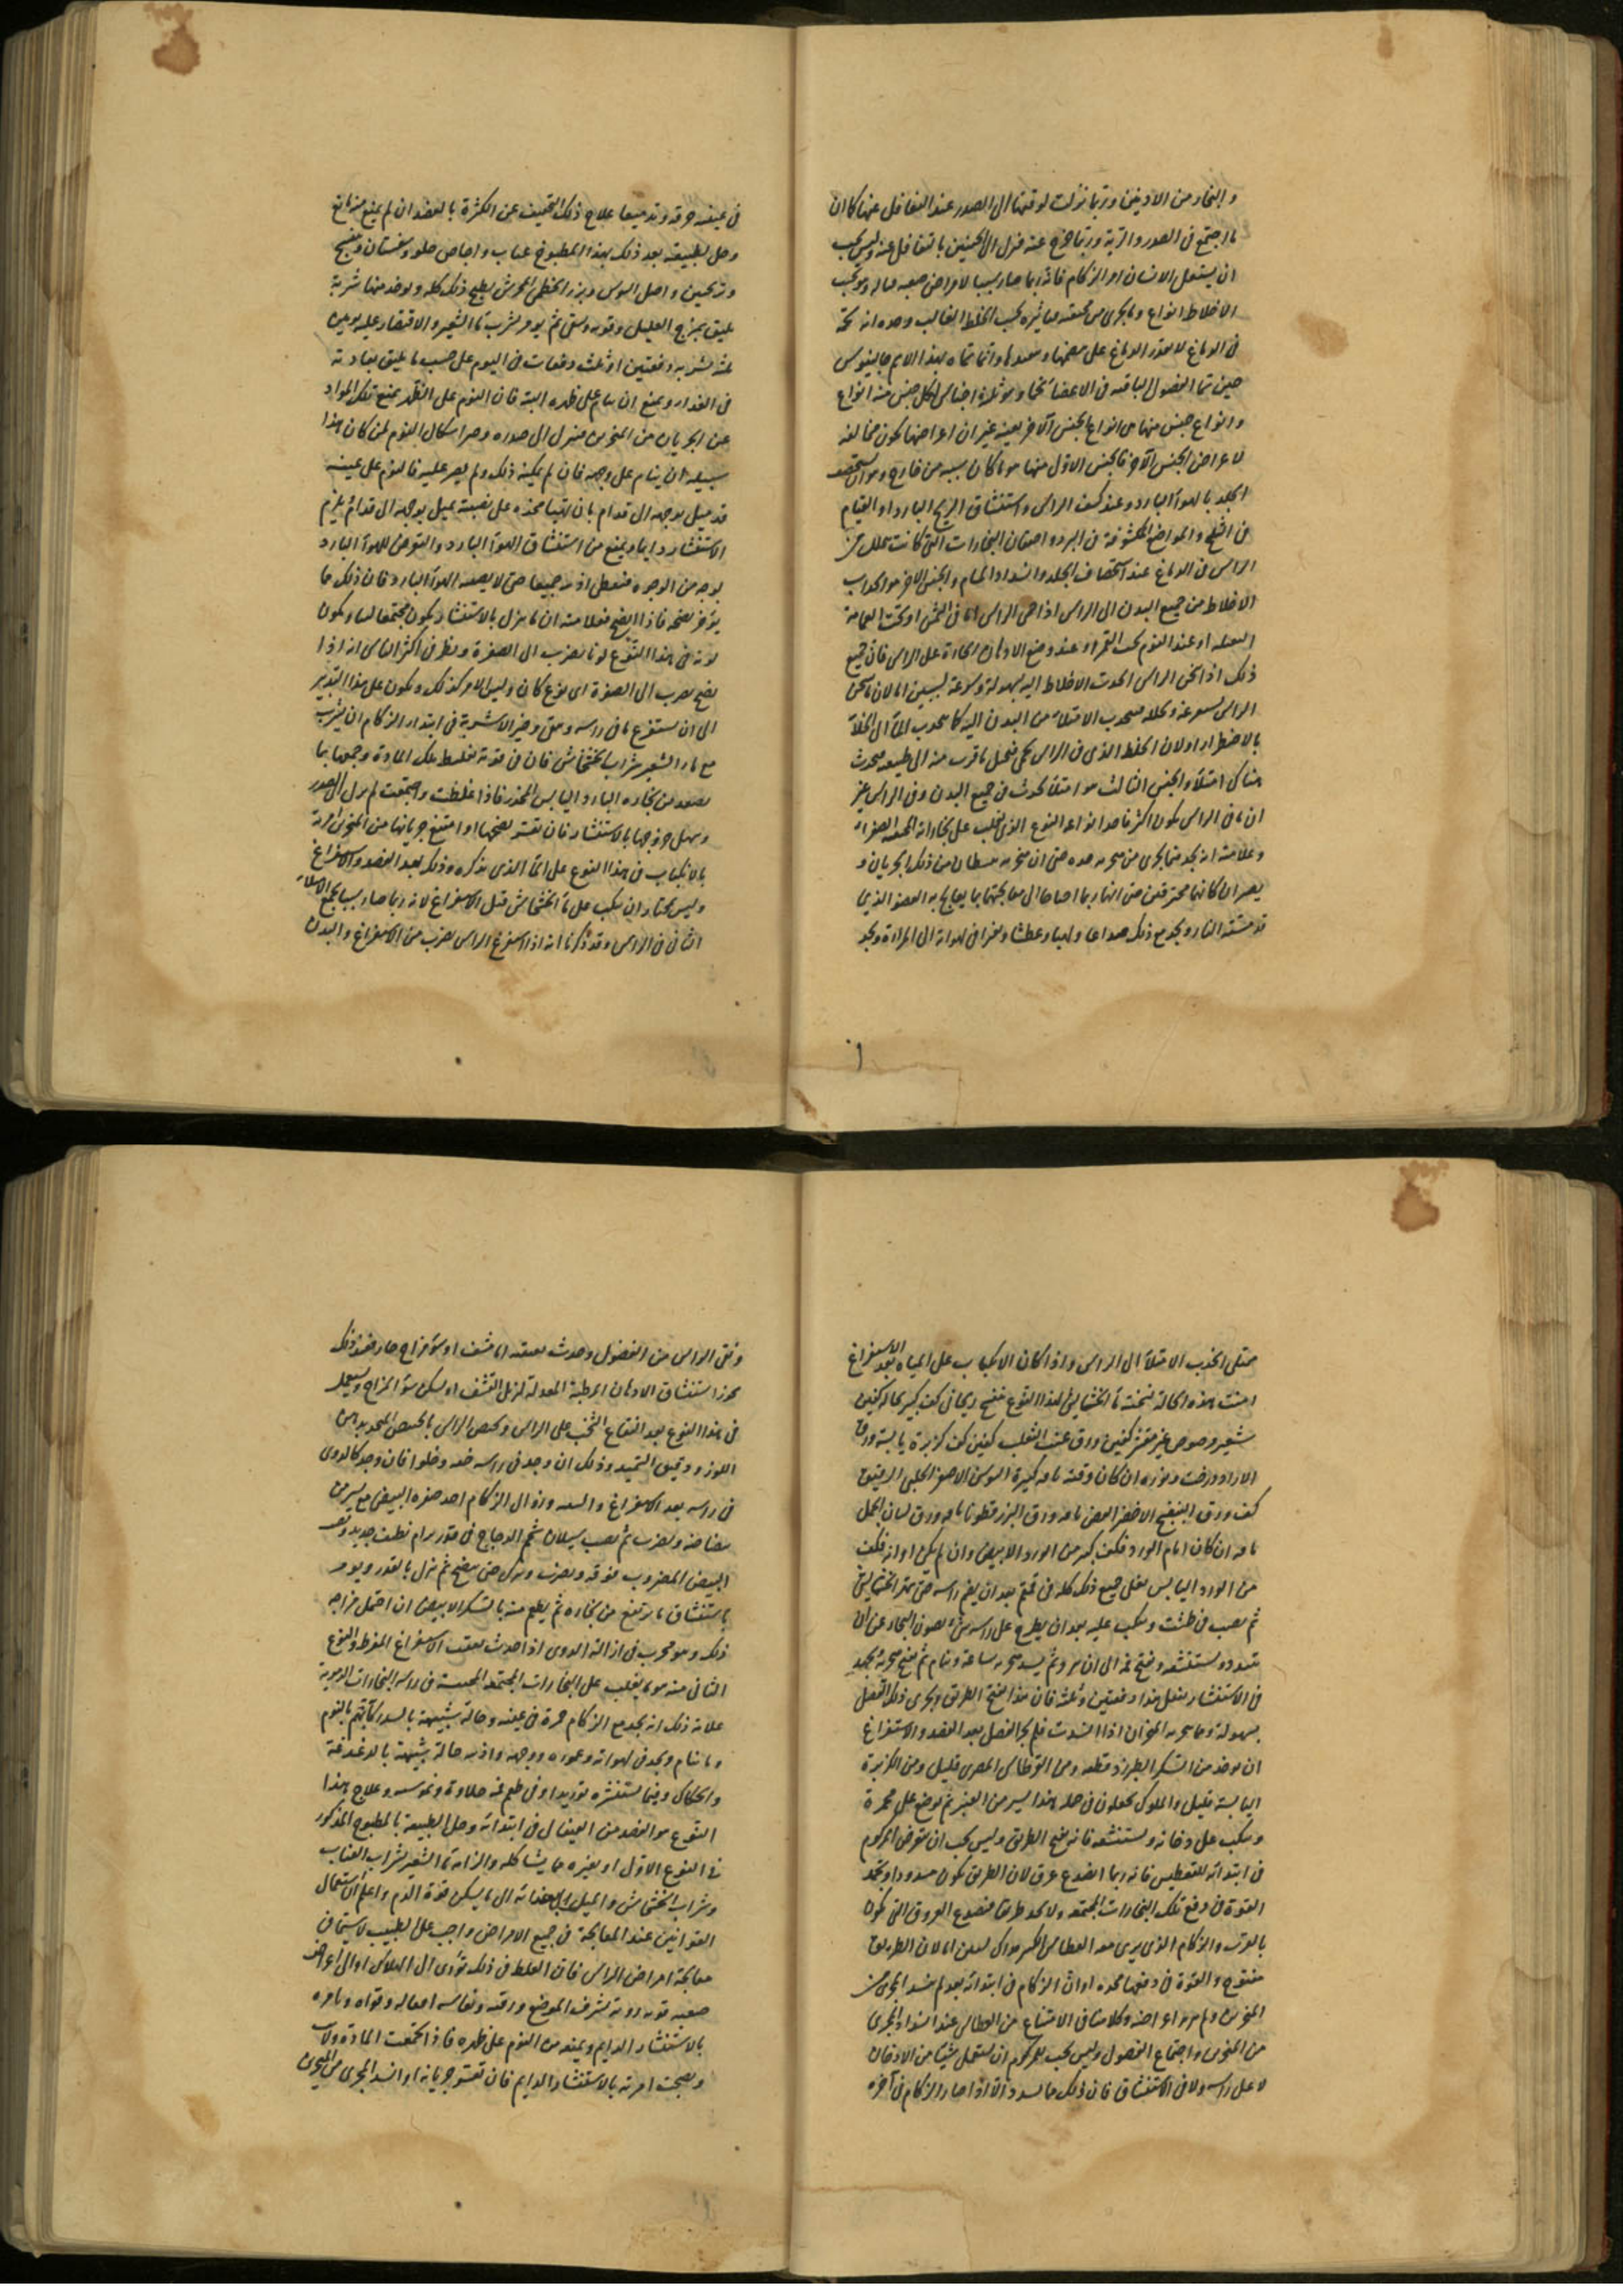 والبخار من الاذنين وربما نزلت لوقتها الى الصدر عند التغافل عنها كما ان
ما اجتمع فى الصدر والرية وربما خرج عنه فنزل الى الجنبين بالتغافل عنه وليس يجب
ان يستعمل الانسان امر الزكام فانه ربما صار سببا لامراض صعبه
الاخلاط انواع وما يجرى من تحته بحسب الخلط الغالب
فى الدماغ على وانما سماه بهذا الاسم جالينوس
حين سما الفضول الباقيه فى الاعضاء وهو ثلاثة اجناس لكل جنس منه انواع
وانواع جنس منها من انواع الجنس الآخر بعينه غير ان اعراضها تكون مخالفه
لاعراض الجنس الآخر فالجنس الاول منها هو ما كان سببه من خارج وهو ان يستحصف
الجلد بالهوآ البارد وعند كشف الراس واستنشاق الريح البارد او القيام
فى الثلج والمواضع المكشوفة فى البرد واحتقان البخارات التى كانت تتحلل من
الراس فى الدماغ عند استحصاف الجلد وانسداد المسام والجنس الآخر هو انجذاب
الاخلاط من جميع البدن الى الراس اذا حمى الراس اما فى الشمس او تحت العمامة
او عند النوم تحت القمر او عند وضع الادهان الحارة على الراس فان جميع
ذلك اذا سخن الراس انجذبت الاخلاط اليه بسهولة وسرعة لسببين اما لان ما سخن
الراس بسرعة فيجذب الامتلاء من البدن اليه كما ينجذب الماء الى الخلاء
بالاضطرار او لان الخلط الذى فى الراس تحلل ما قرب منه الى طبيعته فيحدث
هناك امتلاء والجنس الثالث هو امتلاء يحدث فى جميع البدن وفى الراس غير
ان ما فى الراس يكون اكثر فاحد انواعه النوع الذى يغلب على بخاراته المحتقنه الصفراء
وعلامته انه يجد فيما يجرى من منخريه حده حتى ان منخريه من ذلك الجريان و
يصيران كانهما محترقين حتى انهما ربما احتاجا الى معالجتهما بما يعالج به العضو الذى
قد مسته النار ويجد مع ذلك صداعا ولهيبا وعطشا وتغيرا فى لهواته الى المرارة ويجد
فى عينيه حرقه وتدميعا علاج ذلك التخفيف عن الكثرة بالفصد ان لم يمنع منه مانع
وحل الطبيعة بعد ذلك بهذا المطبوخ عناب واجاص حلو وسبستان وبنفسج
وترنجبين واصل السوس وبزر الخطمى المرضوض يطبخ ذلك كله ويوخذ منها شربة
يليق بمزاج العليل وقوته وسنه ثم يومر بشرب ماء الشعير والاقتصار عليه يومين
دفعتين او ثلث دفعات فى اليوم على حسب ما يليق بعادته
فى الغذاء ويمنع ان ينام على ظهره البتة فان النوم على الظهر يمنع تلك المواد
عن الجريان من المنخرين فينزل الى صدره وخير اشكال النوم لمن كان هذا
سبيله ان ينام على وجهه فان لم يمكنه ذلك ولم يصبر عليه فالنوم على جنبه
قد ميل بوجهه الى قدام بان يتهيا مخده على نصبة يميل بوجهه الى قدام ثم يلزم
الاستنثار دايما ويمنع من استنشاق الهوآ البارد والتعرض للهوآ البارد
بوجه من الوجوه فيغطى اذنيه جميعا حتى لا يصيبه الهوآ البارد فان ذلك مما
يؤخر نضجه فاذا نضج فعلامته ان ما ينزل بالاستنثار يكون مجتمعا ويكون
لونه فى هذا النوع لونا يضرب الى الصفرة ويظن فى اكثر الناس انه اذا
نضج يضرب الى الصفرة اى نوع كان وليس الامر كذلك ويكون على هذا التدبير
الى ان يستفرغ ما فى راسه ويتنقى وخير الاشربة فى ابتداء الزكام ان يشرب
مع ماء الشعير شراب الخشخاش فان فى قوته تغليظ تلك المادة وجمعها بما
يصعد من بخاره البارد اليابس المخدر فاذا غلظت واجتمعت لم ينزل الى الصدر
وسهل خروجها بالاستنثار فان تعسر نضجها او امتنع جريانها من المنخرين مرة
بالانكباب فى هذا النوع على الماء الذى نذكره وذلك بعد الفصد والاستفراغ
وليس يختار ان ينكب على ماء الخشخاش قبل الاستفراغ لانه ربما صار سببا لجمع الامتلاء
الثانى فى الراس وقد ذكرنا انه اذا استفرغ الراس بضرب من الاستفراغ والبدن
ممتلى انجذب الامتلاء الى الراس واذا كان الانكباب على المياه بعد الاستفراغ
امنت هذه الحالة نسخة ماء الخشخاش لهذا النوع بنفسج ريحانى كف كبير نخالة كفين
شعير مرضوض غير مقشر كفين ورق عنب الثعلب كفين كف كزبرة يابسة ورق
الازاد درخت ونوره ان كان وقته باقه كبيرة السوسن الاصفر الجبلى الرقيق
كف ورق البنفسج الاخضر الغض باقه ورق البزرقطونا باقه ورق لسان الحمل
باقه ان كان ايام الورد فكف كبير من الورد الابيض وان لم يكن اوانه فكف
من الورد اليابس يغلى جميع ذلك كله فى قمقم بعد ان يغمر راسه حتى يتهرا الخشخاش
ثم يصب فى طشت وينكب عليه بعد ان يطرح على راسه شىء يصون البخار عن ان
يتبدد ويستنشقه ويفتح فمه الى ان يبرد ثم يسد منخريه ساعة وينام ثم يفتح منخريه ويجتهد
فى الاستنثار يفعل هذا دفعتين وثلثة فان هذا يفتح الطريق ويجرى ذلك الفضل
بسهولة ومما يجرب المنخران اذا انسدت فلم يجر الفضل بعد الفصد والاستفراغ
ان يوخذ من السكر الطبرزد قطعه ومن القرطاس المصرى قليل ومن الكزبرة
اليابسة قليل والملوك يجعلون فى جملة هذا يسير من العنبر ثم يوضع على مجمرة
وينكب على دخانه ويستنشقه فانه يفتح الطريق وليس يجب ان يتعرض المزكوم
فى ابتدائه للتعطيس فانه ربما انصدع عرق لان الطريق يكون مسدودا وتجهد
القوة فى دفع تلك البخارات المجتمعه ولا يجد طريقا فينصدع العروق التى تكون
بالقرب والزكام الذى يرى معه العطاس الكثير هو اى لسببين اما لان الطريق
مفتوح والقوة فى دفعها مجده او ان الزكام فى ابتدائه بعد لم يسد المجرى من
المنخرين ولم يزد اعراضه وكلامنا فى الامتناع من العطاس عند انسداد المجرى
من المنخرين واجتماع الفضول وليس يجب للمزكوم ان يستعمل شيئا من الادهان
لا على راسه ولا فى الاستنشاق فان ذلك مما يسدد الا اذا صار الزكام فى آخره
ونقى الراس من الفضول وحدث بعقبه اما قشف او سوء مزاج حار فعند ذلك
يجوز استنشاق الادهان المرطبة المعدلة ليزيل القشف او يسكن سوء المزاج ويستعمل
فى هذا النوع بعد انقطاع التخم على الراس
اللوز ودقيق السميد وذلك ان وجد فى راسه خفه وخلوا فان وجد كالدوى
فى راسه بعد الاستفراغ والسعه وزوال الزكام اخذ صفره البيض مع يسير من
بياضه ويضرب ثم يصب يسيلان شحم الدجاج فى قدر برام نظيف جديد
البيض المضروب فوقه ويضرب ويترك حتى ينضج ثم ينزل بالقدر ويومر
باستنشاق ما يرتفع من بخاره ثم يطعم منه بالسكر الابيض ان احتمل مزاجه
ذلك وهو مجرب فى ازالة الدوى اذا حدث بعقب الاستفراغ المفرط والنوع
الثانى منه هو ما يغلب على البخارات المجتمعه المحتبسة فى راسه البخارات الدموية
علامة ذلك انه يجد مع الزكام حمرة فى عينيه وحالة شبيهة بالسدر كانه يهم بالنوم
وما ينام ويجد فى لهواته وعموره ووجهه واذنيه حالة شبيهة بالدغدغة
والحكاك وفيما يستنثره توريدا وفى طعم فمه حلاوة ودسومه وعلاج هذا
النوع هو الفصد من القيفال فى ابتدائه وحل الطبيعة بالمطبوخ المذكور
فى النوع الاول او بغيره مما يشاكله والزامه ماء الشعير بشراب العناب
وشراب الخشخاش والميل بغذائه الى ما يسكن قوة الدم واعلم ان استعمال
القوانين عند المعالجة فى جميع الامراض واجب على الطبيب لا سيما فى
معالجة امراض الراس فان الغلط فى ذلك يؤدى الى الهلاك او الى امراض
صعبه قوية ردية لشرف الموضع ورقته ونفاسه افعاله وقواه وبامره
بالاستنثار الدايم ويمنعه من النوم على ظهره فاذا اجتمعت المادة وذابت
ونضجت امرته بالاستنثار الدايم فان تعسر جريانه او انسد المجرى من المنخرين